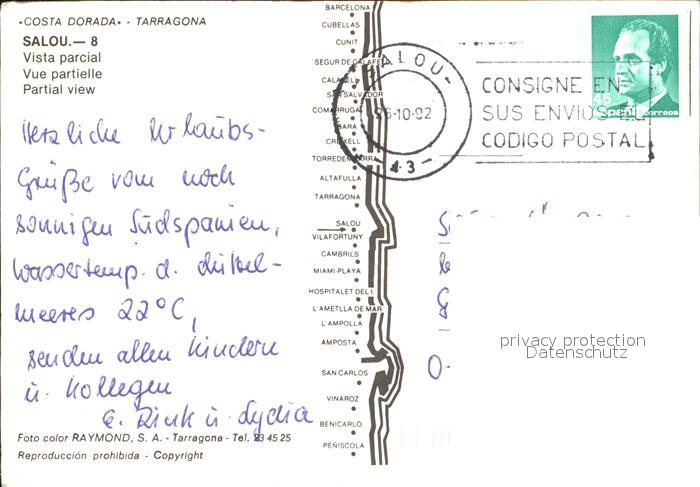 •COSTA DORADA• - TARRAGONA
SALOU.— 8
Vista parcial
Vue partielle
Partial view
Herzliche Urlaubs-
Grüße vom noch
sonnigen Südspanien,
Wassertemp. d. Mittel-
meeres 22°C,
senden allen Kindern
u. Kollegen
E. Rink u. Lydia
Foto color RAYMOND, S. A. - Tarragona - Tel. 23 45 25
Reproducción prohibida - Copyright
BARCELONA
CUBELLAS
CUNIT
SEGUR DE CALAFELL
CALAFELL
SAN SALVADOR
COMARRUGA
BARA
CREIXELL
TORREDEMBARRA
ALTAFULLA
TARRAGONA
SALOU
VILAFORTUNY
CAMBRILS
MIAMI-PLAYA
HOSPITALET DEL I.
L'AMETLLA DE MAR
L'AMPOLLA
AMPOSTA
SAN CARLOS
VINAROZ
BENICARLÓ
PEÑISCOLA
SALOU-
26-10-92
- 43 -
CONSIGNE EN
SUS ENVIOS EL
CODIGO POSTAL
45
correos
privacy protection
Datenschutz